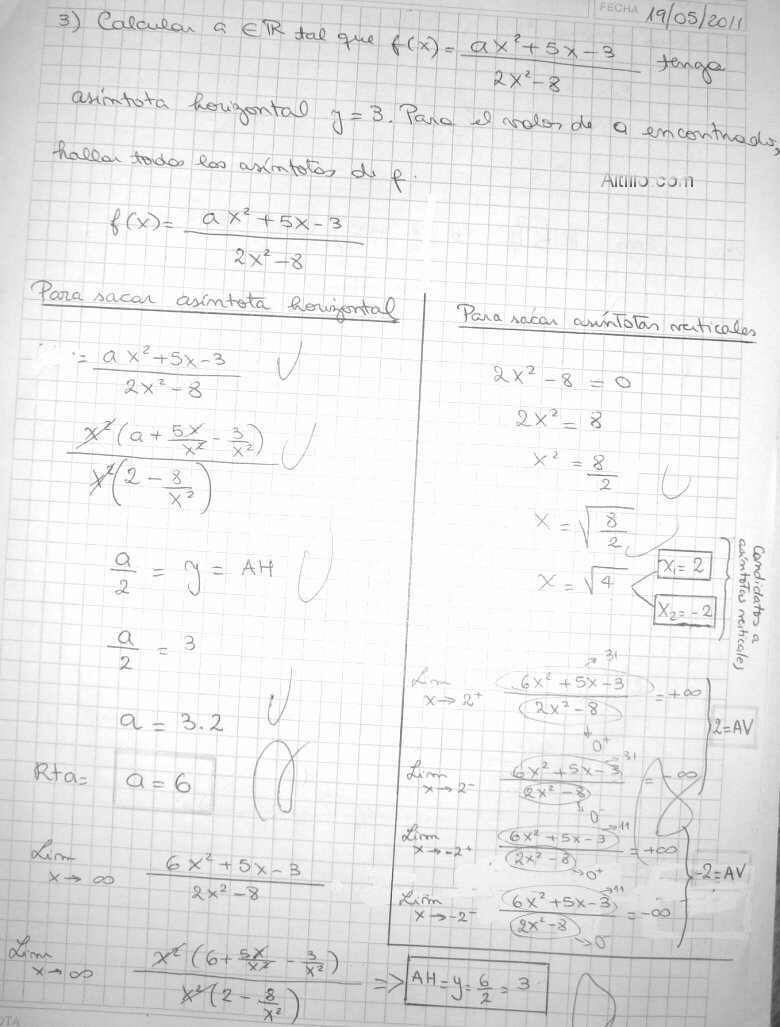 FECHA 19/05/2011
3) Calcular a ∈ ℝ tal que f(x) = (ax² + 5x - 3)/(2x² - 8) tenga
asíntota horizontal y = 3. Para el valor de a encontrado,
hallar todas las asíntotas de f.
Altillo.com
f(x) = (ax² + 5x - 3)/(2x² - 8)
Para sacar asíntota horizontal
= (ax² + 5x - 3)/(2x² - 8)
x²(a + 5x/x² - 3/x²)/x²(2 - 8/x²)
a/2 = y = AH
a/2 = 3
a = 3.2
Rta = a = 6
Lim x→∞ (6x² + 5x - 3)/(2x² - 8)
Lim x→∞ x²(6 + 5x/x² - 3/x²)/x²(2 - 8/x²) => AH = y = 6/2 = 3
Para sacar asíntotas verticales
2x² - 8 = 0
2x² = 8
x² = 8/2
x = √(8/2)
x = √4
x₁ = 2
x₂ = -2
Candidatos a
asíntotas verticales
Lim x→2⁺ (6x² + 5x - 3)/(2x² - 8) = +∞
→ 31
→ 0⁺
Lim x→2⁻ (6x² + 5x - 3)/(2x² - 8) = -∞
→ 31
→ 0⁻
2 = AV
Lim x→-2⁺ (6x² + 5x - 3)/(2x² - 8) = +∞
→ 11
→ 0⁺
Lim x→-2⁻ (6x² + 5x - 3)/(2x² - 8) = -∞
→ 11
→ 0
-2 = AV